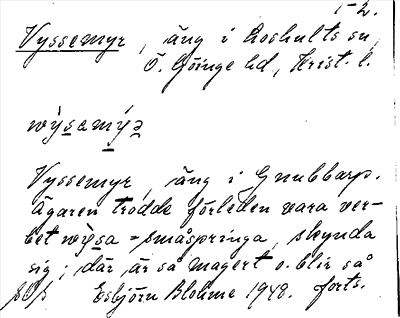 1-2.
Vyssemyr, äng i Loshults sn,
Ö. Göinge hd, Krist. l.
Vyssemyr, äng i Gnubbarp.
Ägaren trodde förleden vara ver-
bet wỳsa = småspringa, skynda
sig; där är så magert o. blir så
Esbjörn Blohme 1948. forts.